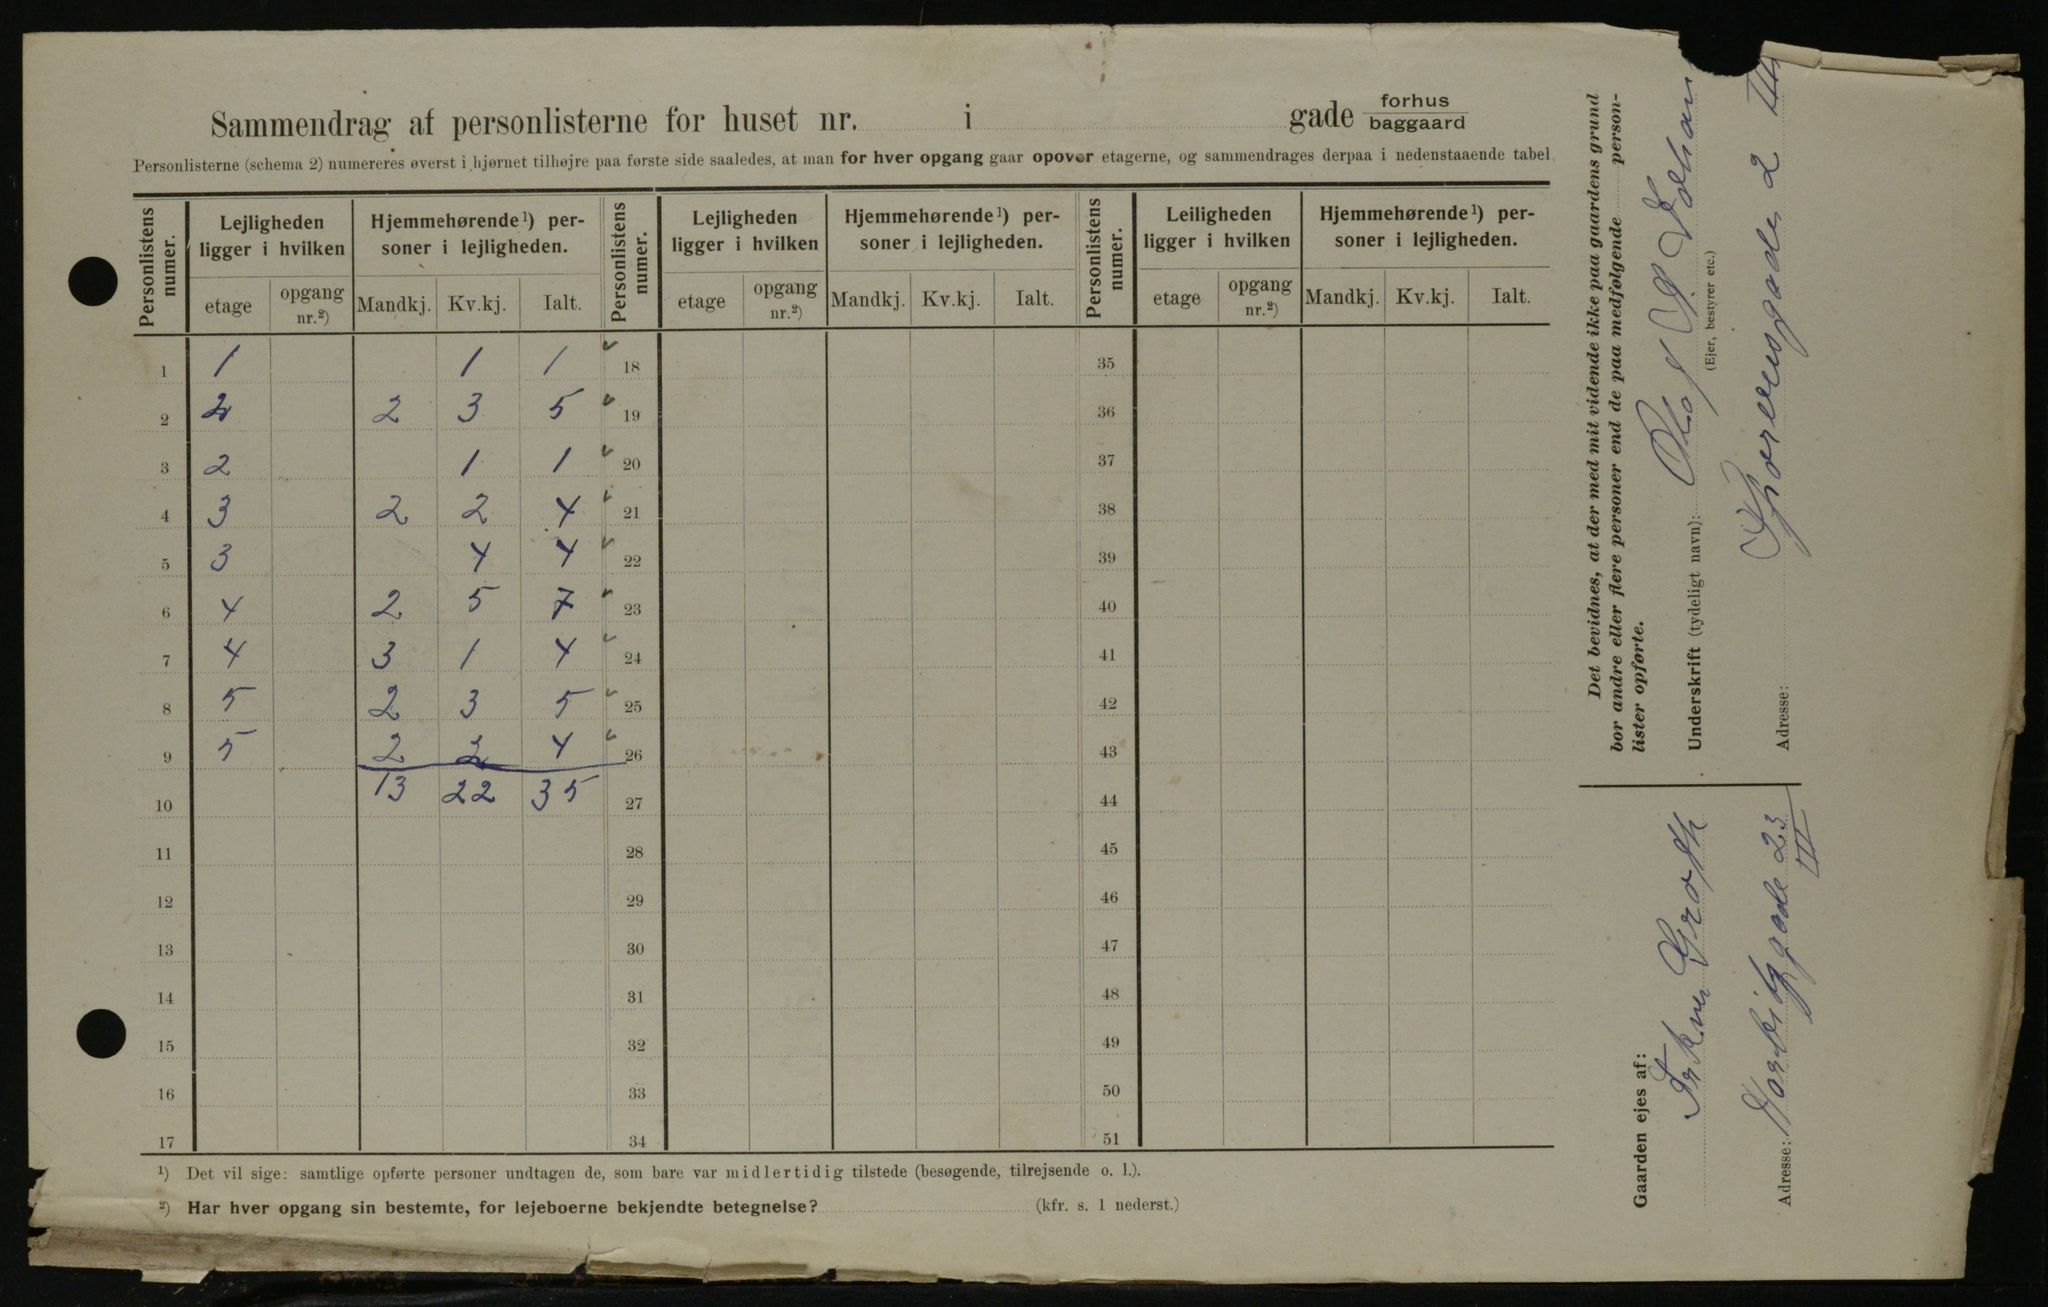 Sammendrag af personlisterne for huset nr. i gade forhus baggaard
Personlisterne (schema 2) numereres øverst i hjørnet tilhøjre paa første side saaledes, at man for hver opgang gaar opover etagerne, og sammendrages derpaa i nedenstaaende tabel.
Personlistens numer. Lejligheden ligger i hvilken Hjemmehørende¹) personer i lejligheden. Personlistens numer. Lejligheden ligger i hvilken Hjemmehørende¹) personer i lejligheden. Personlistens numer. Leiligheden ligger i hvilken Hjemmehørende¹) personer i lejligheden.
etage opgang nr.²) Mandkj. Kv.kj. Ialt. etage opgang nr.²) Mandkj. Kv.kj. Ialt. etage opgang nr.²) Mandkj. Kv.kj. Ialt.
1 1 1 1 18 35
2 2 2 3 5 19 36
3 2 1 1 20 37
4 3 2 2 4 21 38
5 3 4 4 22 39
6 4 2 5 7 23 40
7 4 3 1 4 24 41
8 5 2 3 5 25 42
9 5 2 2 4 26 43
10 13 22 35 27 44
11 28 45
12 29 46
13 30 47
14 31 48
15 32 49
16 33 50
17 34 51
¹) Det vil sige: samtlige opførte personer undtagen de, som bare var midlertidig tilstede (besøgende, tilrejsende o. l.).
²) Har hver opgang sin bestemte, for lejeboerne bekjendte betegnelse? (kfr. s. 1 nederst.)
Det bevidnes, at der med mit vidende ikke paa gaardens grund
bor andre eller flere personer end de paa medfølgende person-
lister opførte.
Underskrift (tydeligt navn):
(Ejer, bestyrer etc.)
Adresse: 2 III
Gaarden ejes af:
Groth
Adresse: gade 23
III